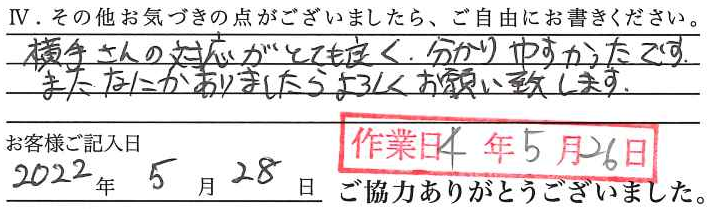 Ⅳ．その他お気づきの点がございましたら、ご自由にお書きください。
横手さんの対応がとても良く、分かりやすかったです。
またなにかありましたらよろしくお願い致します。
お客様ご記入日
2022年 5月 28日
作業日4年5月26日
ご協力ありがとうございました。